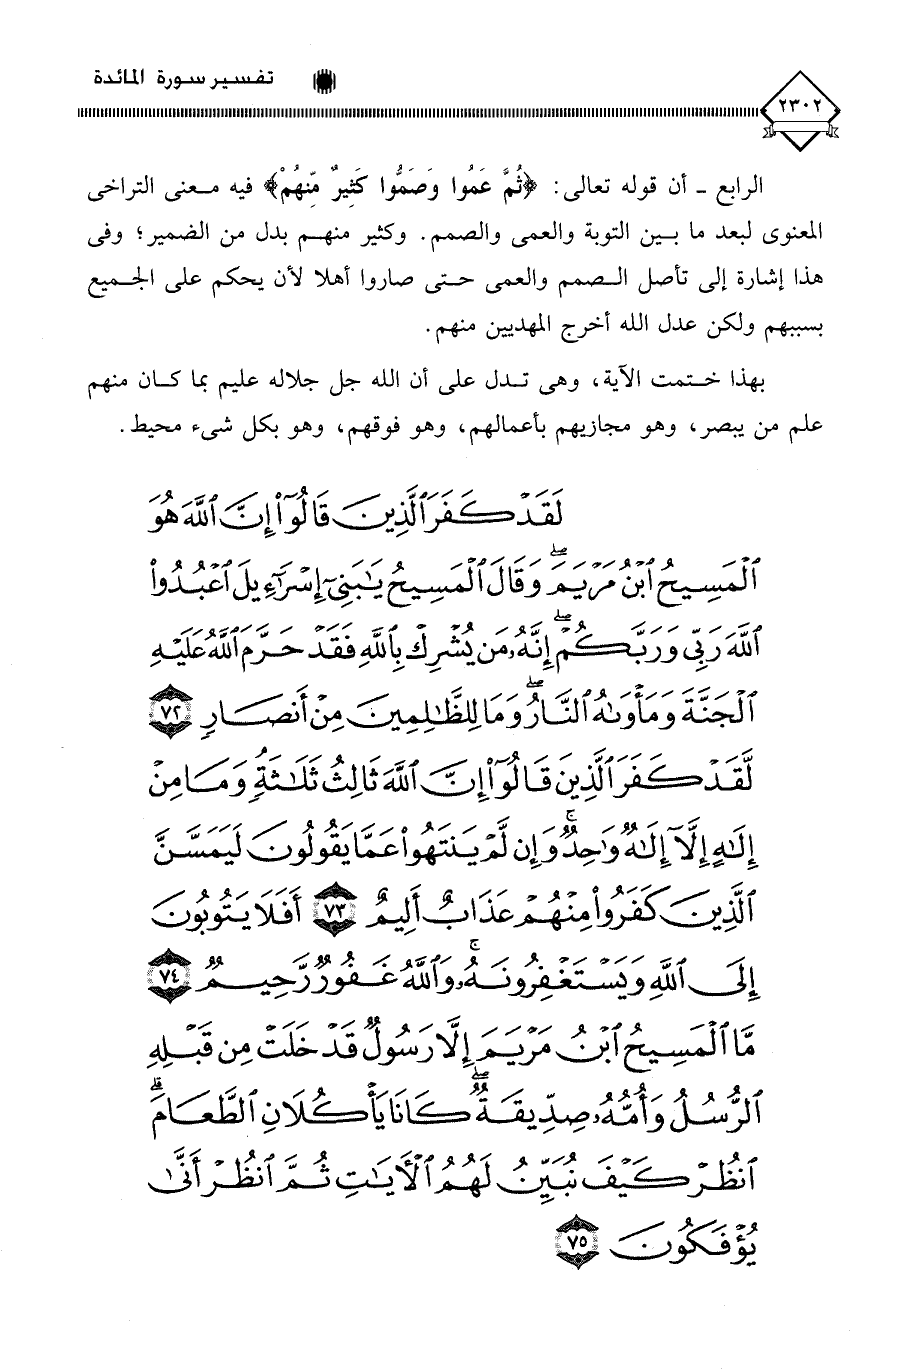 تفسير سورة المائدة
٢٣٠٢
الرابع ـ أن قوله تعالى: ﴿ثُمَّ عَمُوا وَصَمُّوا كَثِيرٌ مِّنْهُمْ﴾ فيه معنى التراخى
المعنوى لبعد ما بين التوبة والعمى والصمم. وكثير منهم بدل من الضمير؛ وفى
هذا إشارة إلى تأصل الصمم والعمى حتى صاروا أهلا لأن يحكم على الجميع
بسببهم ولكن عدل الله أخرج المهديين منهم.
بهذا ختمت الآية، وهى تدل على أن الله جل جلاله عليم بما كان منهم
علم من يبصر، وهو مجازيهم بأعمالهم، وهو فوقهم، وهو بكل شىء محيط.
لَقَدْ كَفَرَ ٱلَّذِينَ قَالُوٓا۟ إِنَّ ٱللَّهَ هُوَ
ٱلْمَسِيحُ ٱبْنُ مَرْيَمَ ۖ وَقَالَ ٱلْمَسِيحُ يَٰبَنِىٓ إِسْرَٰٓءِيلَ ٱعْبُدُوا۟
ٱللَّهَ رَبِّى وَرَبَّكُمْ ۖ إِنَّهُۥ مَن يُشْرِكْ بِٱللَّهِ فَقَدْ حَرَّمَ ٱللَّهُ عَلَيْهِ
ٱلْجَنَّةَ وَمَأْوَىٰهُ ٱلنَّارُ ۖ وَمَا لِلظَّٰلِمِينَ مِنْ أَنصَارٍ ٧٢
لَّقَدْ كَفَرَ ٱلَّذِينَ قَالُوٓا۟ إِنَّ ٱللَّهَ ثَالِثُ ثَلَٰثَةٍ ۘ وَمَا مِنْ
إِلَٰهٍ إِلَّآ إِلَٰهٌ وَٰحِدٌ ۚ وَإِن لَّمْ يَنتَهُوا۟ عَمَّا يَقُولُونَ لَيَمَسَّنَّ
ٱلَّذِينَ كَفَرُوا۟ مِنْهُمْ عَذَابٌ أَلِيمٌ ٧٣ أَفَلَا يَتُوبُونَ
إِلَى ٱللَّهِ وَيَسْتَغْفِرُونَهُۥ ۚ وَٱللَّهُ غَفُورٌ رَّحِيمٌ ٧٤
مَّا ٱلْمَسِيحُ ٱبْنُ مَرْيَمَ إِلَّا رَسُولٌ قَدْ خَلَتْ مِن قَبْلِهِ
ٱلرُّسُلُ وَأُمُّهُۥ صِدِّيقَةٌ ۖ كَانَا يَأْكُلَانِ ٱلطَّعَامَ ۗ
ٱنظُرْ كَيْفَ نُبَيِّنُ لَهُمُ ٱلْءَايَٰتِ ثُمَّ ٱنظُرْ أَنَّىٰ
يُؤْفَكُونَ ٧٥